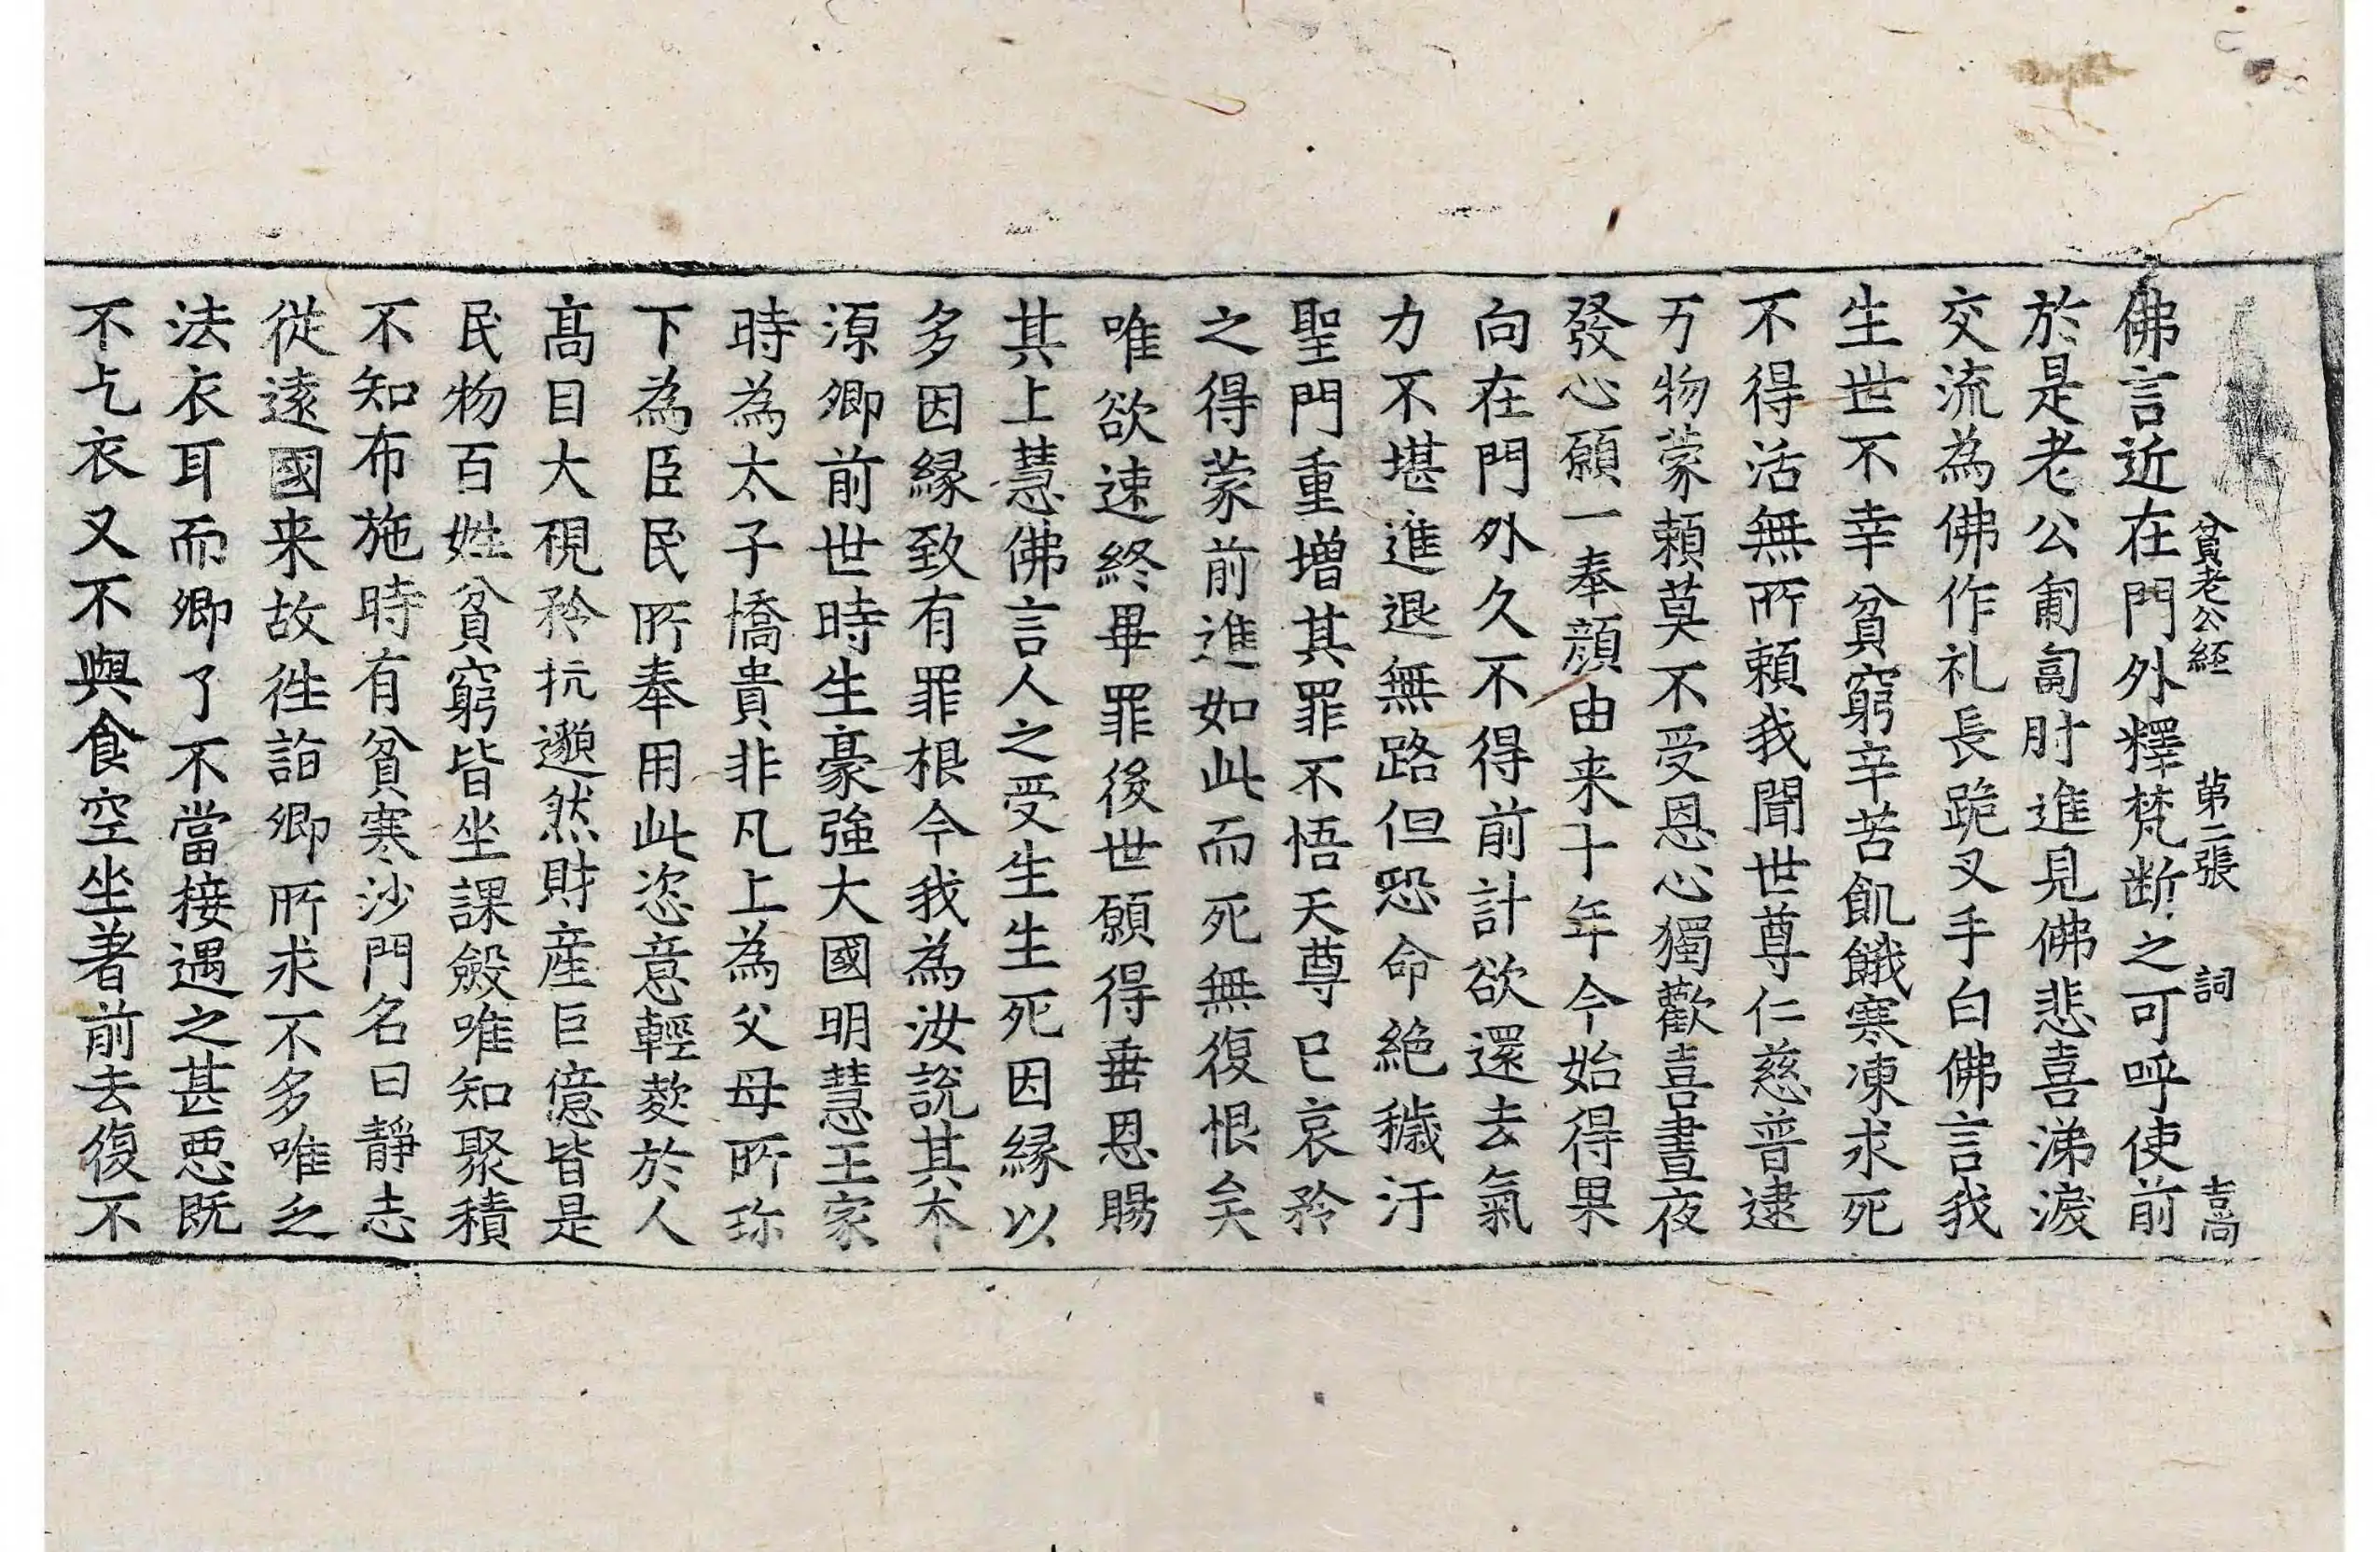 貧老公經 第二張 詞 吉高
佛言近在門外釋梵断之可呼使前
於是老公匍匐肘進見佛悲喜涕淚
交流為佛作礼長跪叉手白佛言我
生世不幸貧窮辛苦飢餓寒凍求死
不得活無所頼我聞世尊仁慈普逮
万物蒙頼莫不受恩心獨歡喜晝夜
發心願一奉顔由来十年今始得果
向在門外久不得前計欲還去氣
力不堪進退無路但恐命絶穢汙
聖門重增其罪不悟天尊已哀矜
之得蒙前進如此而死無復恨矣
唯欲速終畢罪後世願得垂恩賜
其上慧佛言人之受生生死因縁以
多因縁致有罪根今我為汝說其本
源卿前世時生豪強大國明慧王家
時為太子憍貴非凡上為父母所珎
下為臣民所奉用此恣意輕欺於人
髙目大視矜抗邈然財産巨億皆是
民物百姓貧窮皆坐課斂唯知聚積
不知布施時有貧寒沙門名曰靜志
従遠國来故徃詣卿所求不多唯乏
法衣耳而卿了不當接遇之甚悪既
不乞衣又不與食空坐著前去復不